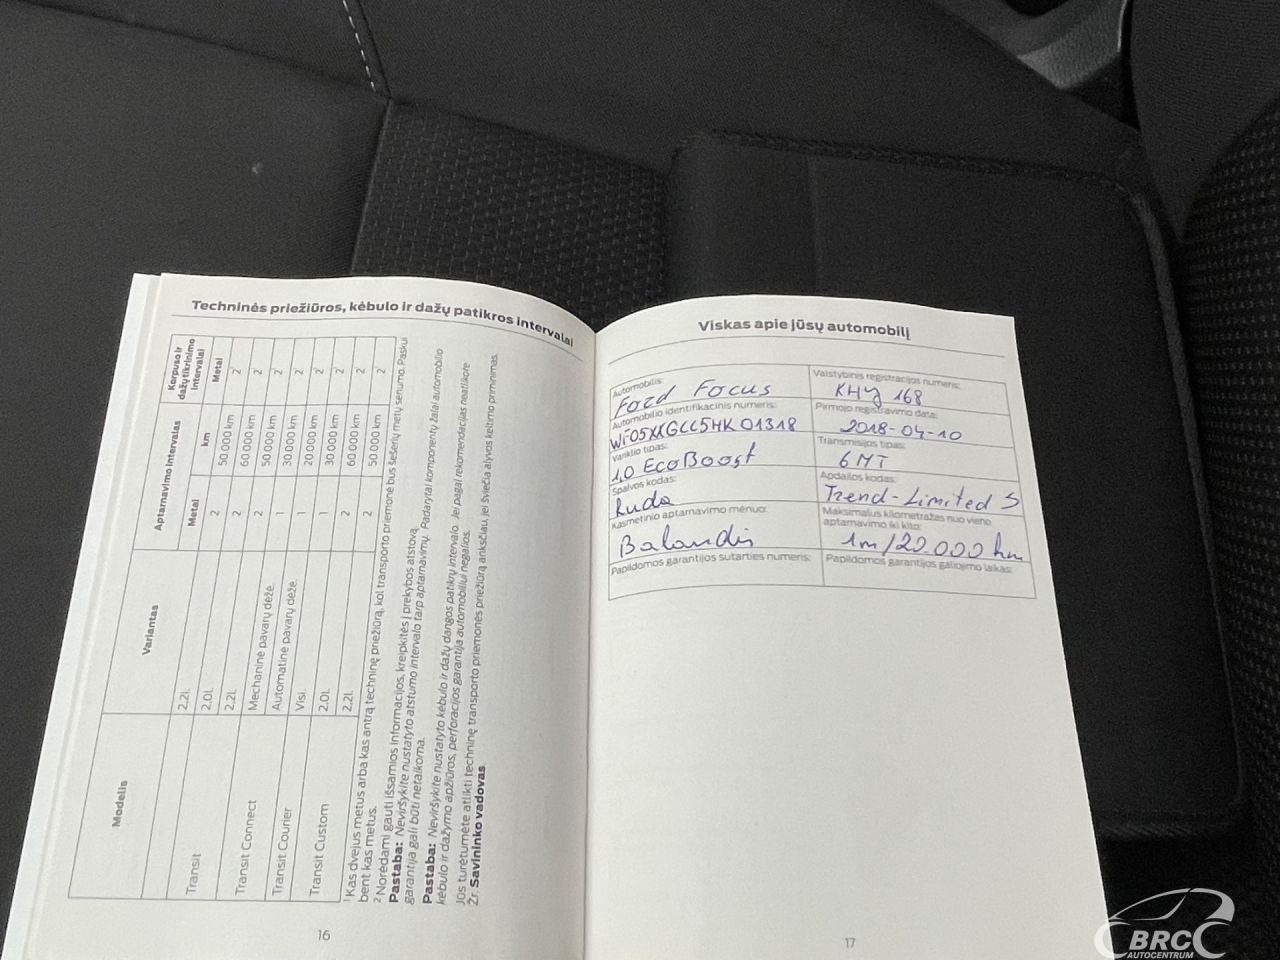 Techninės priežiūros, kėbulo ir dažų patikros intervalai
Modelis Variantas Aptarnavimo intervalas Korpuso ir dažų tikrinimo intervalai
Metai km Metai
Transit 2,2l. 2 50 000 km 2
2,0l. 2 60 000 km 2
Transit Connect 2,2l. 2 50 000 km 2
Mechaninė pavarų dėžė. 1 30 000 km 2
Transit Courier Automatinė pavarų dėžė. 1 20 000 km 2
Transit Custom Visi. 1 30 000 km 2
2,0l. 2 60 000 km 2
2,2l. 2 50 000 km 2
1 Kas dvejus metus arba kas antrą techninę priežiūrą, kol transporto priemonė bus šešerių metų senumo. Paskui
bent kas metus.
2 Norėdami gauti išsamios informacijos, kreipkitės į prekybos atstovą.
Pastaba: Neviršykite nustatyto atstumo intervalo tarp aptarnavimų. Padarytai komponentų žalai automobilio
garantija gali būti netaikoma.
Pastaba: Neviršykite nustatyto kėbulo ir dažų dangos patikrų intervalo. Jei pagal rekomendacijas neatliksite
kėbulo ir dažymo apžiūros, perforacijos garantija automobiliui negalios.
Jūs turėtumėte atlikti techninę transporto priemonės priežiūrą anksčiau, jei šviečia alyvos keitimo priminimas.
Žr. Savininko vadovas.
16
Viskas apie jūsų automobilį
Automobilis: Valstybinis registracijos numeris:
Ford Focus KHY 168
Automobilio identifikacinis numeris: Pirmojo registravimo data:
WF05XXGCC5HK01318 2018-04-10
Variklio tipas: Transmisijos tipas:
1,0 EcoBoost 6MT
Spalvos kodas: Apdailos kodas:
Ruda Trend-Limited S
Kasmetinio aptarnavimo mėnuo: Maksimalus kilometražas nuo vieno
aptarnavimo iki kito:
Balandis 1m/20.000 km
Papildomos garantijos sutarties numeris: Papildomos garantijos galiojimo laikas:
17
BRC
AUTOCENTRUM